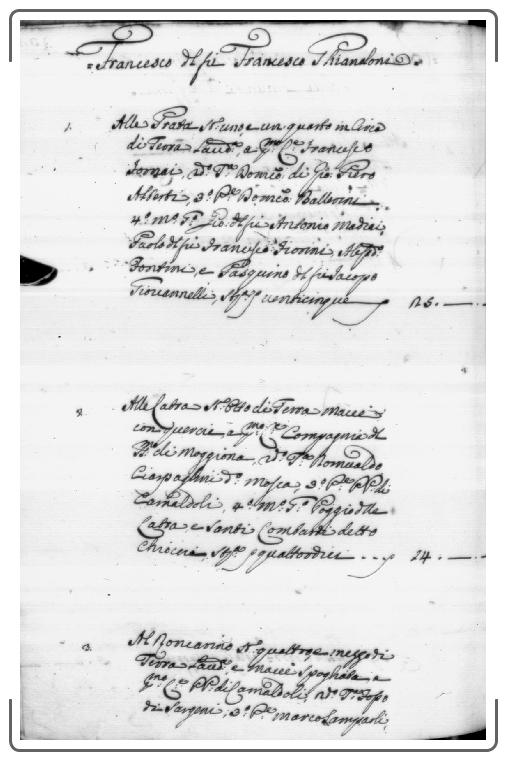 Francesco dl fu Francesco Ghianaloni
1. Alle Prata N.º uno, e un quarto in Circa
di Terra Lavod.ª a p.mo C.e Francesco
Fornai, 2.º T.ª Dom.co di Gio. Piero
Alberti, 3.º P.e Dom.co Ballerini
4.º m.º T.ª Gio. dl fu Antonio Madiai,
Paolo dl fu Francesco Fiorini, Aless.º
Fontini, e Pasquino dl fu Jacopo
Giovannelli, venticinque 25. —
2. Alla Cabra N.º Otto di Terra macei
con querce a p.mo C.e Compagnia dl
di Moggiona, 2.º T.ª Romualdo
Ciarpaglini d.º Mosca, 3.º P.e PP. di
Camaldoli, 4.º m.º T.ª Poggio dlla
Cabra e Santi Combatti detto
quattordici 24. —
3. Al Roncarino N.º quattro, e mezzo di
Terra Lavod.ª e macei Spogliata a
p.mo C.e PP. di Camaldoli, 2.º T.ª
di Sargeni, 3.º P.e Marco Lampaoli,